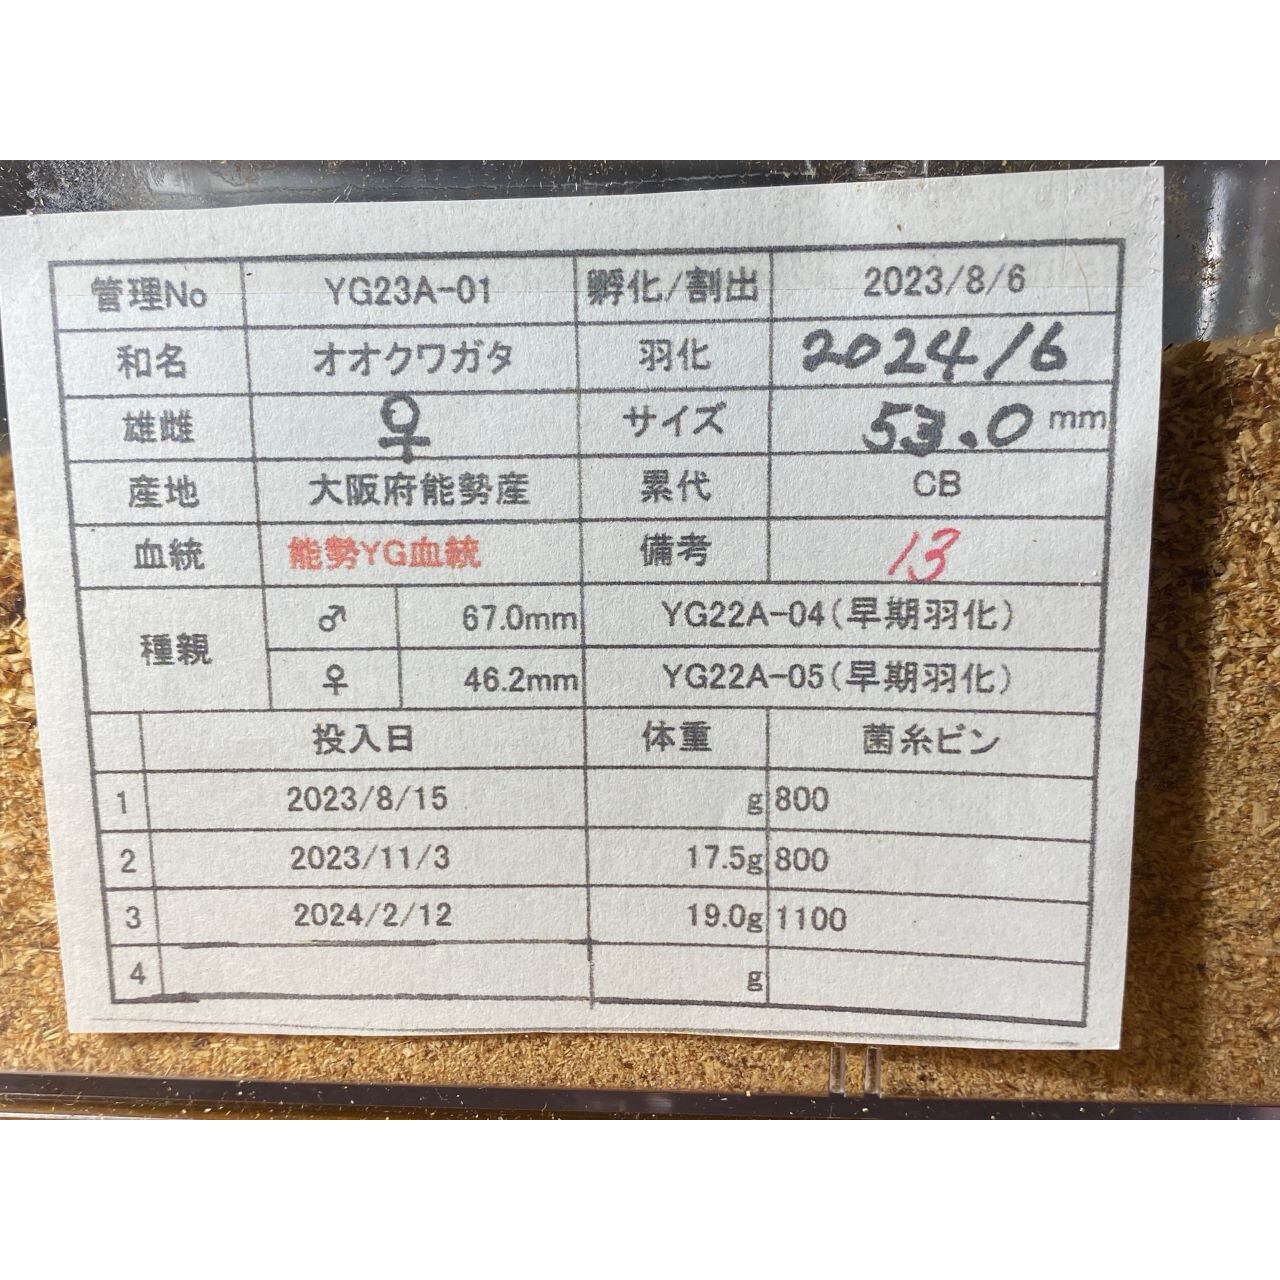 管理No YG23A-01 孵化/割出 2023/8/6
和名 オオクワガタ 羽化 2024/6
雄雌 ♀ サイズ 53.0 mm
産地 大阪府能勢産 累代 CB
血統 能勢YG血統 備考 13
種親 ♂ 67.0mm YG22A-04(早期羽化)
♀ 46.2mm YG22A-05(早期羽化)
投入日 体重 菌糸ビン
1 2023/8/15 g 800
2 2023/11/3 17.5g 800
3 2024/2/12 19.0g 1100
4 g